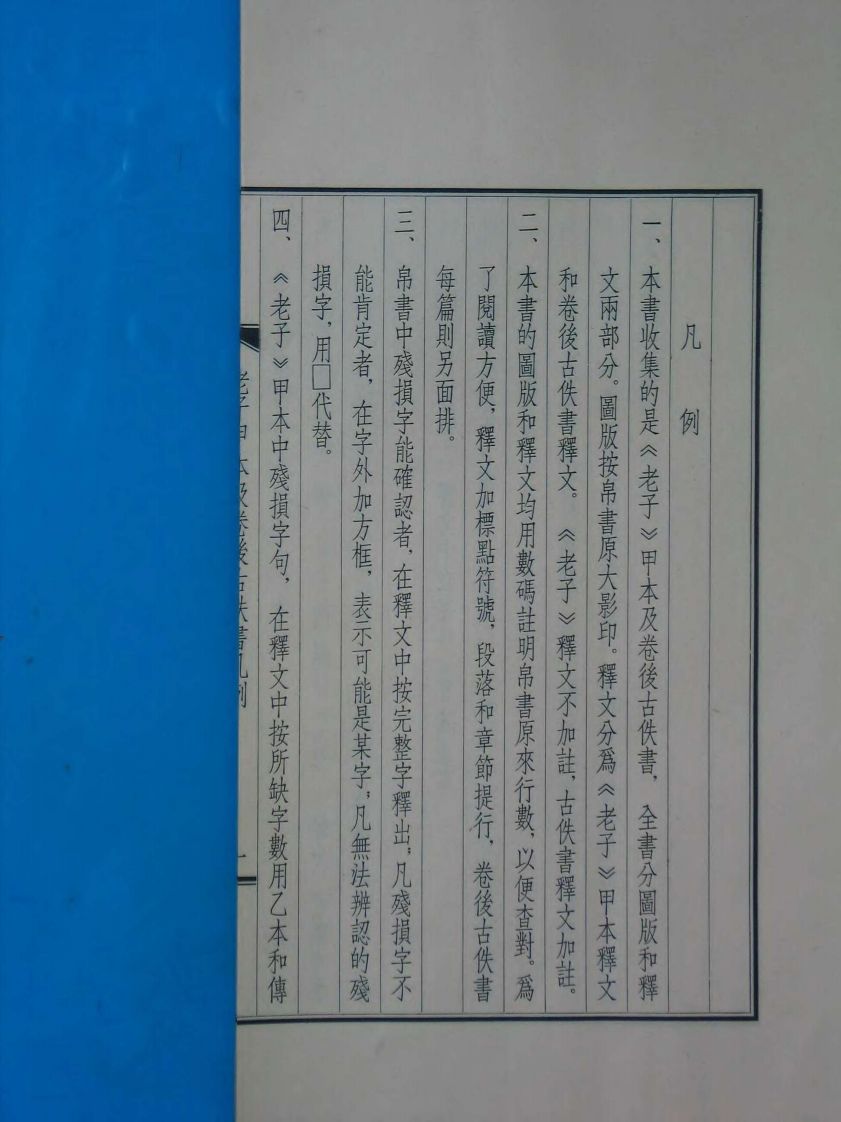 凡例
一、本書收集的是《老子》甲本及卷後古佚書，全書分圖版和釋
文兩部分。圖版按帛書原大影印。釋文分爲《老子》甲本釋文
和卷後古佚書釋文。《老子》釋文不加註，古佚書釋文加註。
二、本書的圖版和釋文均用數碼註明帛書原來行數，以便查對。爲
了閱讀方便，釋文加標點符號，段落和章節提行，卷後古佚書
每篇則另面排。
三、帛書中殘損字能確認者，在釋文中按完整字釋出；凡殘損字不
能肯定者，在字外加方框，表示可能是某字；凡無法辨認的殘
損字，用□代替。
四、《老子》甲本中殘損字句，在釋文中按所缺字數用乙本和傳
老子甲本及卷後古佚書凡例
一